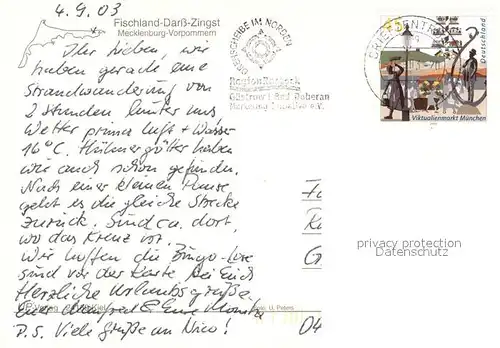 4.9.03
Fischland-Darß-Zingst
Mecklenburg-Vorpommern
Ihr lieben wir
haben gerade eine
Strandwanderung von
2 Stunden hinter uns
Wetter prima Luft + Wasser
16°C. Hühnergötter haben
wir auch schon gefunden.
Nach einer kleinen Pause
geht es die gleiche Strecke
zurück. Sind ca. dort,
wo das Kreuz
Wir hoffen die Bingo-Lose
sind vor der Karte bei Euch
Herzliche Urlaubsgrüße
Manfred & Eure Monika
P.S. Viele Grüße an Nico!
SCHEIBE IM NORDEN
Region Rostock
Güstrow Bad Doberan
e.V.
BRIEFZENTRUM
45
Deutschland
Viktualienmarkt München
privacy protection
Datenschutz
U. Peters
04